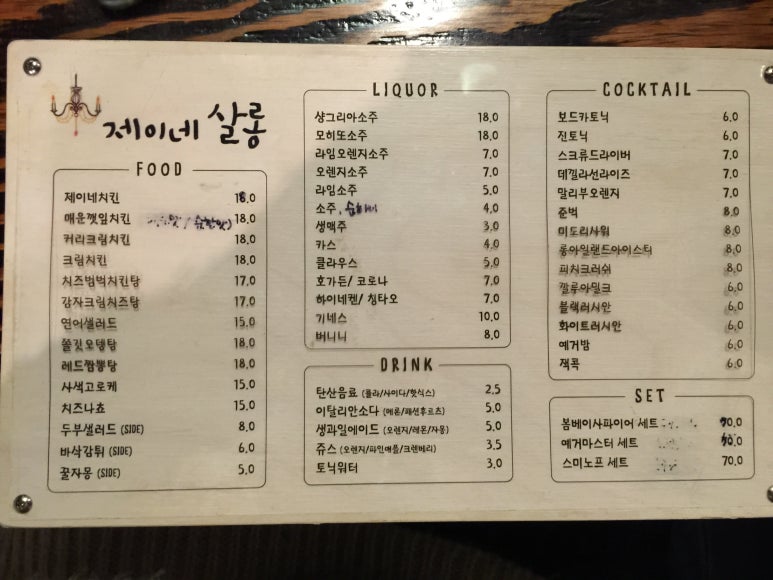 제이네 살롱
FOOD
제이네치킨 18.0
매운깻잎치킨 순한맛) 18.0
커리크림치킨 18.0
크림치킨 18.0
치즈범벅치킨탕 17.0
감자크림치즈탕 17.0
연어샐러드 15.0
쫄깃오뎅탕 18.0
레드짬뽕탕 18.0
사색고로케 15.0
치즈나쵸 15.0
두부샐러드 (SIDE) 8.0
바삭감튀 (SIDE) 6.0
꿀자몽 (SIDE) 5.0
LIQUOR
샹그리아소주 18.0
모히또소주 18.0
라임오렌지소주 7.0
오렌지소주 7.0
라임소주 5.0
소주, 4.0
생맥주 3.0
카스 4.0
클라우스 5.0
호가든/ 코로나 7.0
하이네켄/ 칭타오 7.0
기네스 10.0
버니니 8.0
DRINK
탄산음료 (콜라/사이다/핫식스) 2.5
이탈리안소다 (메론/패션후르츠) 5.0
생과일에이드 (오렌지/레몬/자몽) 5.0
쥬스 (오렌지/파인애플/크렌베리) 3.5
토닉워터 3.0
COCKTAIL
보드카토닉 6.0
진토닉 6.0
스크류드라이버 7.0
데낄라선라이즈 7.0
말리부오렌지 7.0
준벅 8.0
미도리사워 8.0
롱아일랜드아이스티 8.0
피치크러쉬 8.0
깔루아밀크 6.0
블랙러시안 6.0
화이트러시안 6.0
예거밤 6.0
잭콕 6.0
SET
봄베이사파이어 세트 70.0
예거마스터 세트 70.0
스미노프 세트 70.0